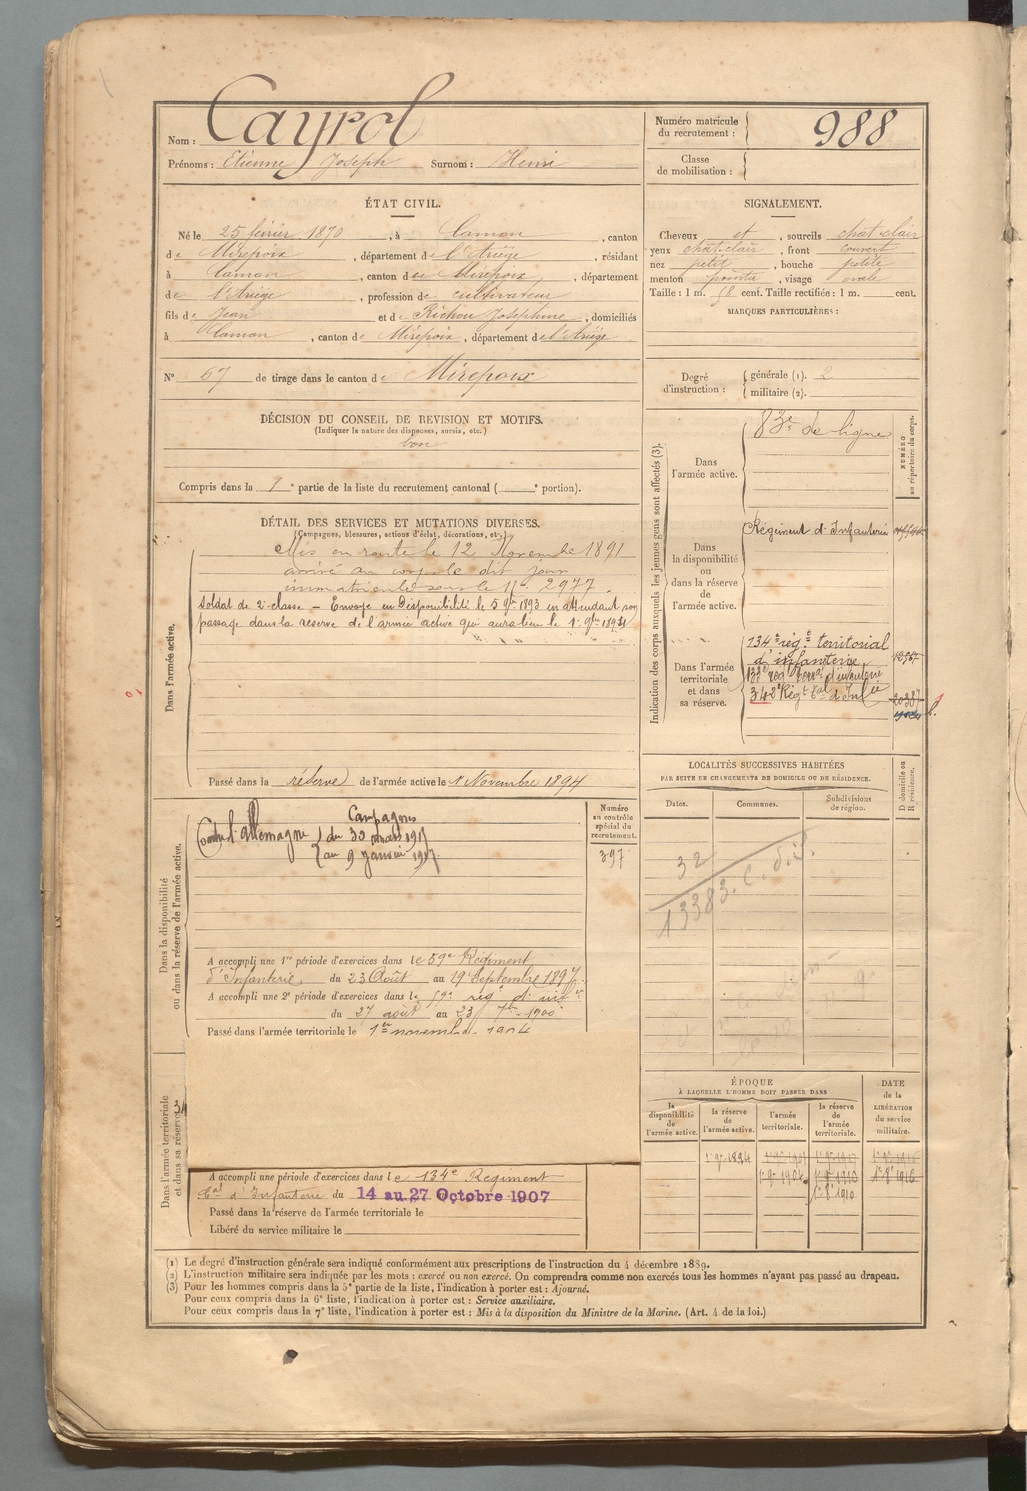 Nom : Cayrol
Prénoms : Etienne Joseph Surnom : Henri
Numéro matricule du recrutement : 988
Classe de mobilisation :
ÉTAT CIVIL.
Né le 25 février 1870, à Camon, canton
de Mirepoix, département de l'Ariège, résidant
à Camon, canton de Mirepoix, département
de l'Ariège, profession de cultivateur
fils de Jean et de Richou Joséphine, domiciliés
à Camon, canton de Mirepoix, département de l'Ariège
N° 67 de tirage dans le canton de Mirepoix
SIGNALEMENT.
Cheveux et, sourcils chat-clair
yeux chat-clair, front couvert
nez petit, bouche petite
menton pointu, visage ovale
Taille : 1 m. 58 cent. Taille rectifiée : 1 m. cent.
MARQUES PARTICULIÈRES :
Degré d'instruction : générale (1). 2
militaire (2).
DÉCISION DU CONSEIL DE REVISION ET MOTIFS.
(Indiquer la nature des dispenses, sursis, etc.)
bon
Compris dans la 1e partie de la liste du recrutement cantonal ( e portion).
DÉTAIL DES SERVICES ET MUTATIONS DIVERSES.
(Campagnes, blessures, actions d'éclat, décorations, etc.)
Dans l'armée active.
Mis en route le 12 Novembre 1891
arrivé au corps le dit jour
immatriculé sous le N° 2977.
Soldat de 2e classe — Envoyé en Disponibilité le 5 9bre 1893 en attendant son
passage dans la réserve de l'armée active qui aura lieu le 1er 9bre 1894
Passé dans la réserve de l'armée active le 1 Novembre 1894
Indication des corps auxquels les jeunes gens sont affectés (3).
NUMÉRO au répertoire du corps.
Dans l'armée active.
83e de ligne
Dans la disponibilité ou dans la réserve de l'armée active.
Régiment d'Infanterie
Dans l'armée territoriale et dans sa réserve.
134e rég.t territorial
d'infanterie
133e rég.t terr.al d'infanterie
342e Rég.t t.al d'Inf.ie
LOCALITÉS SUCCESSIVES HABITÉES
PAR SUITE DE CHANGEMENTS DE DOMICILE OU DE RÉSIDENCE.
Dates. Communes. Subdivisions de région. D domicile ou R résidence.
32
13383
Dans la disponibilité ou dans la réserve de l'armée active.
Numéro au contrôle spécial du recrutement.
397
Campagnes
Contre l'Allemagne
A accompli une 1re période d'exercices dans le 59e Régiment
d'Infanterie du 23 Août au 19 Septembre 1897
A accompli une 2e période d'exercices dans le 59e rég.t d'inf.ie
du 27 août au 23 7bre 1900
Passé dans l'armée territoriale le 1er novembre 1904
Dans l'armée territoriale et dans sa réserve
A accompli une période d'exercices dans le 134e Régiment
t.al d'Infanterie du 14 au 27 Octobre 1907
Passé dans la réserve de l'armée territoriale le
Libéré du service militaire le
ÉPOQUE
À LAQUELLE L'HOMME DOIT PASSER DANS
la disponibilité de l'armée active. la réserve de l'armée active. l'armée territoriale. la réserve de l'armée territoriale.
DATE de la LIBÉRATION du service militaire.
(1) Le degré d'instruction générale sera indiqué conformément aux prescriptions de l'instruction du 4 décembre 1889.
(2) L'instruction militaire sera indiquée par les mots : exercé ou non exercé. On comprendra comme non exercés tous les hommes n'ayant pas passé au drapeau.
(3) Pour les hommes compris dans la 5e partie de la liste, l'indication à porter est : Ajourné.
Pour ceux compris dans la 6e liste, l'indication à porter est : Service auxiliaire.
Pour ceux compris dans la 7e liste, l'indication à porter est : Mis à la disposition du Ministre de la Marine. (Art. 4 de la loi.)